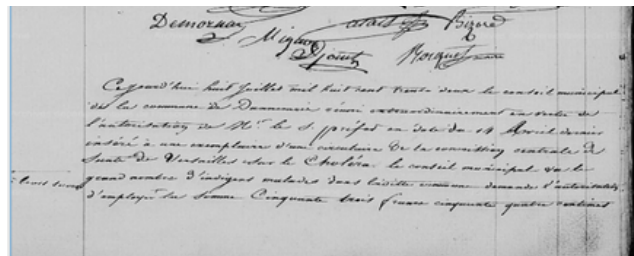 Demornay Bizard
Mignon
Ce jourd'hui huit juillet mil huit cent trente deux le conseil municipal
de la commune de Dannemarie réuni extraordinairement en vertu de
l'autorisation de Mr. le S. préfet en date du 14 Avril dernier
inséré à une exemplaire d'une circulaire de la commission centrale de
Santé de Versailles sur le Choléra le conseil municipal vu le
grand nombre d'indigens malades dans ladite commune demande l'autorisation
d'employer la somme Cinquante trois francs cinquante quatre centimes